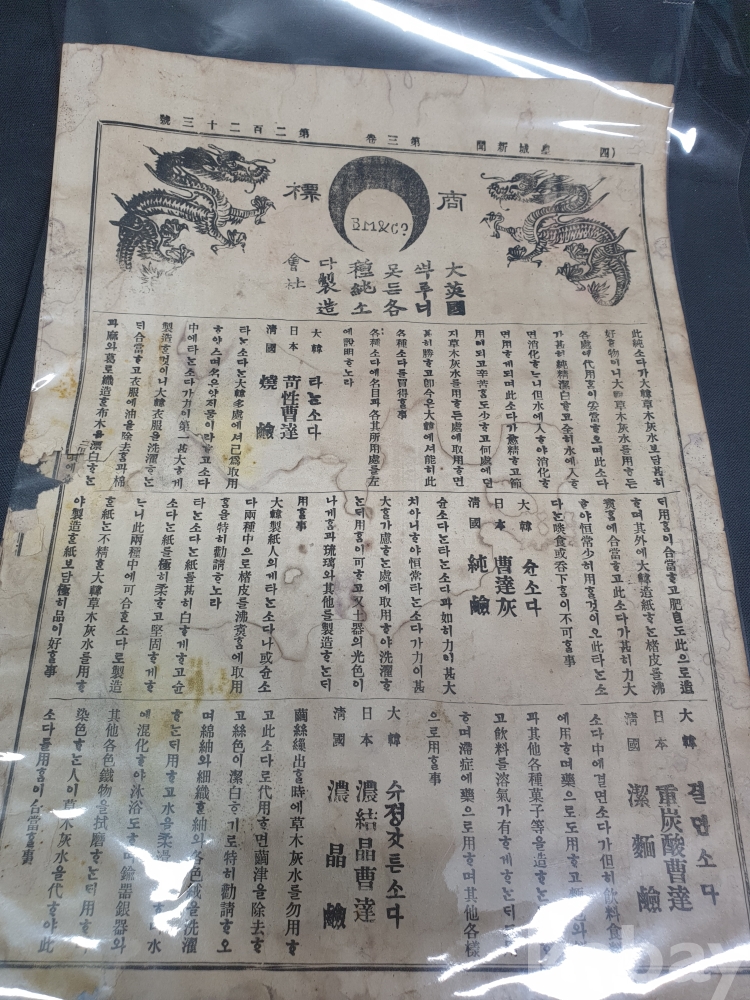 (四
皇城新聞
第三卷
第二百二十三號
商標
BM&Co
大英國
ᄲᅮ루너
못든各
種純소
다製造
會社
此純소다가大韓草木灰水보담甚히
好ᄒᆞᆫ物이니大韓草木灰水를用ᄒᆞ든
各處에代用ᄒᆞᆷ이妥當ᄒᆞ오며此소다
가甚히純精潔白ᄒᆞ고全히水에入ᄒᆞ
면消化ᄒᆞᄂᆞ니但水에入ᄒᆞ야消化ᄒᆞ
면用ᄒᆞ게되며此소다가愈精ᄒᆞ고節
用이되고辛苦ᄒᆞᆷ도少ᄒᆞ고何處에던
지草木灰水를用ᄒᆞ든處에取用ᄒᆞ면
甚히勝ᄒᆞ고卽今은大韓에셔能히此
各種소다를買得ᄒᆞᆯ事
各種소다에名目과各其所用處를左
에說明ᄒᆞ노라
大韓 타ᄂᆞᆫ소다
日本 苛性曹達
淸國 燒鹼
타ᄂᆞᆫ소다ᄂᆞᆫ大韓多處에셔已爲取用
ᄒᆞ야스며名은양지물이라ᄒᆞ고소다
中에타ᄂᆞᆫ소다가力이第一甚大ᄒᆞ게
製造ᄒᆞᆫ것이니大韓衣服을洗濯ᄒᆞᄂᆞᆫ
ᄃᆡ合當ᄒᆞ고衣服에油을除去ᄒᆞᆷ과棉
과麻와葛로織造ᄒᆞᆫ布木을漂白ᄒᆞᄂᆞᆫ
ᄃᆡ用ᄒᆞᆷ이合當ᄒᆞ고肥皂도此으로造
ᄒᆞ며其外에大韓造紙ᄒᆞᄂᆞᆫ楮皮를沸
煑ᄒᆞᆷ에合當ᄒᆞ고此소다가甚히力大
ᄒᆞ야恒常少히用ᄒᆞᆯ것이오此타ᄂᆞᆫ소
다ᄂᆞᆫ啖食或呑下ᄒᆞᆷ이不可ᄒᆞᆯ事
大韓 슌소다
日本 曹達灰
淸國 純鹼
슌소다ᄂᆞᆫ타ᄂᆞᆫ소다과如히力이甚大
치아니ᄒᆞ야恒常타ᄂᆞᆫ소다가力이甚
大ᄒᆞᆯ가慮ᄒᆞᄂᆞᆫ處에取用ᄒᆞ야洗濯ᄒᆞ
ᄂᆞᆫᄃᆡ用ᄒᆞᆷ이可ᄒᆞ고又土器의光色이
나게ᄒᆞᆷ과琉璃와其他를製造ᄒᆞᄂᆞᆫᄃᆡ
用ᄒᆞᆯ事
大韓製紙人의게타ᄂᆞᆫ소다나或슌소
다兩種中으로楮皮를沸煑ᄒᆞᆷ에取用
ᄒᆞᆷ을特히勸請ᄒᆞ노라
타ᄂᆞᆫ소다ᄂᆞᆫ紙를甚히白ᄒᆞ게ᄒᆞ고슌
소다ᄂᆞᆫ紙를極히柔ᄒᆞ고堅固ᄒᆞ게ᄒᆞ
ᄂᆞ니此兩種中에可合ᄒᆞᆫ소다로製造
ᄒᆞᆫ紙ᄂᆞᆫ不精ᄒᆞᆫ大韓草木灰水를用ᄒᆞ
야製造ᄒᆞᆫ紙보담極히品이好ᄒᆞᆯ事
大韓 결면소다
日本 重炭酸曹達
淸國 潔麵鹼
소다中에결면소다가但히飮料食
에用ᄒᆞ며藥으로도用ᄒᆞ고
과其他各種菓子等을造ᄒᆞᄂᆞᆫ
고飮料를溶氣가有ᄒᆞ게ᄒᆞᄂᆞᆫᄃᆡ
ᄒᆞ며滯症에藥으로用ᄒᆞ며其他各樣
으로用ᄒᆞᆯ事
大韓 수정갓튼소다
日本 濃結晶曹達
淸國 濃晶鹼
繭絲繅出ᄒᆞᆯ時에草木灰水를勿用ᄒᆞ
고此소다로代用ᄒᆞ면繭津을除去ᄒᆞ
고絲色이潔白ᄒᆞ기로特히勸請ᄒᆞ오
며綿紬와細織ᄒᆞᆫ紬와各色織을洗濯
ᄒᆞᄂᆞᆫᄃᆡ用ᄒᆞ고水을柔
에混化ᄒᆞ야沐浴도ᄒᆞ며鍮器銀器와
其他各色鐵物을拭磨ᄒᆞᄂᆞᆫᄃᆡ用ᄒᆞ
染色ᄒᆞᄂᆞᆫ人이草木灰水을代ᄒᆞ야此
소다를用ᄒᆞᆷ이合當ᄒᆞᆯ事
ebay